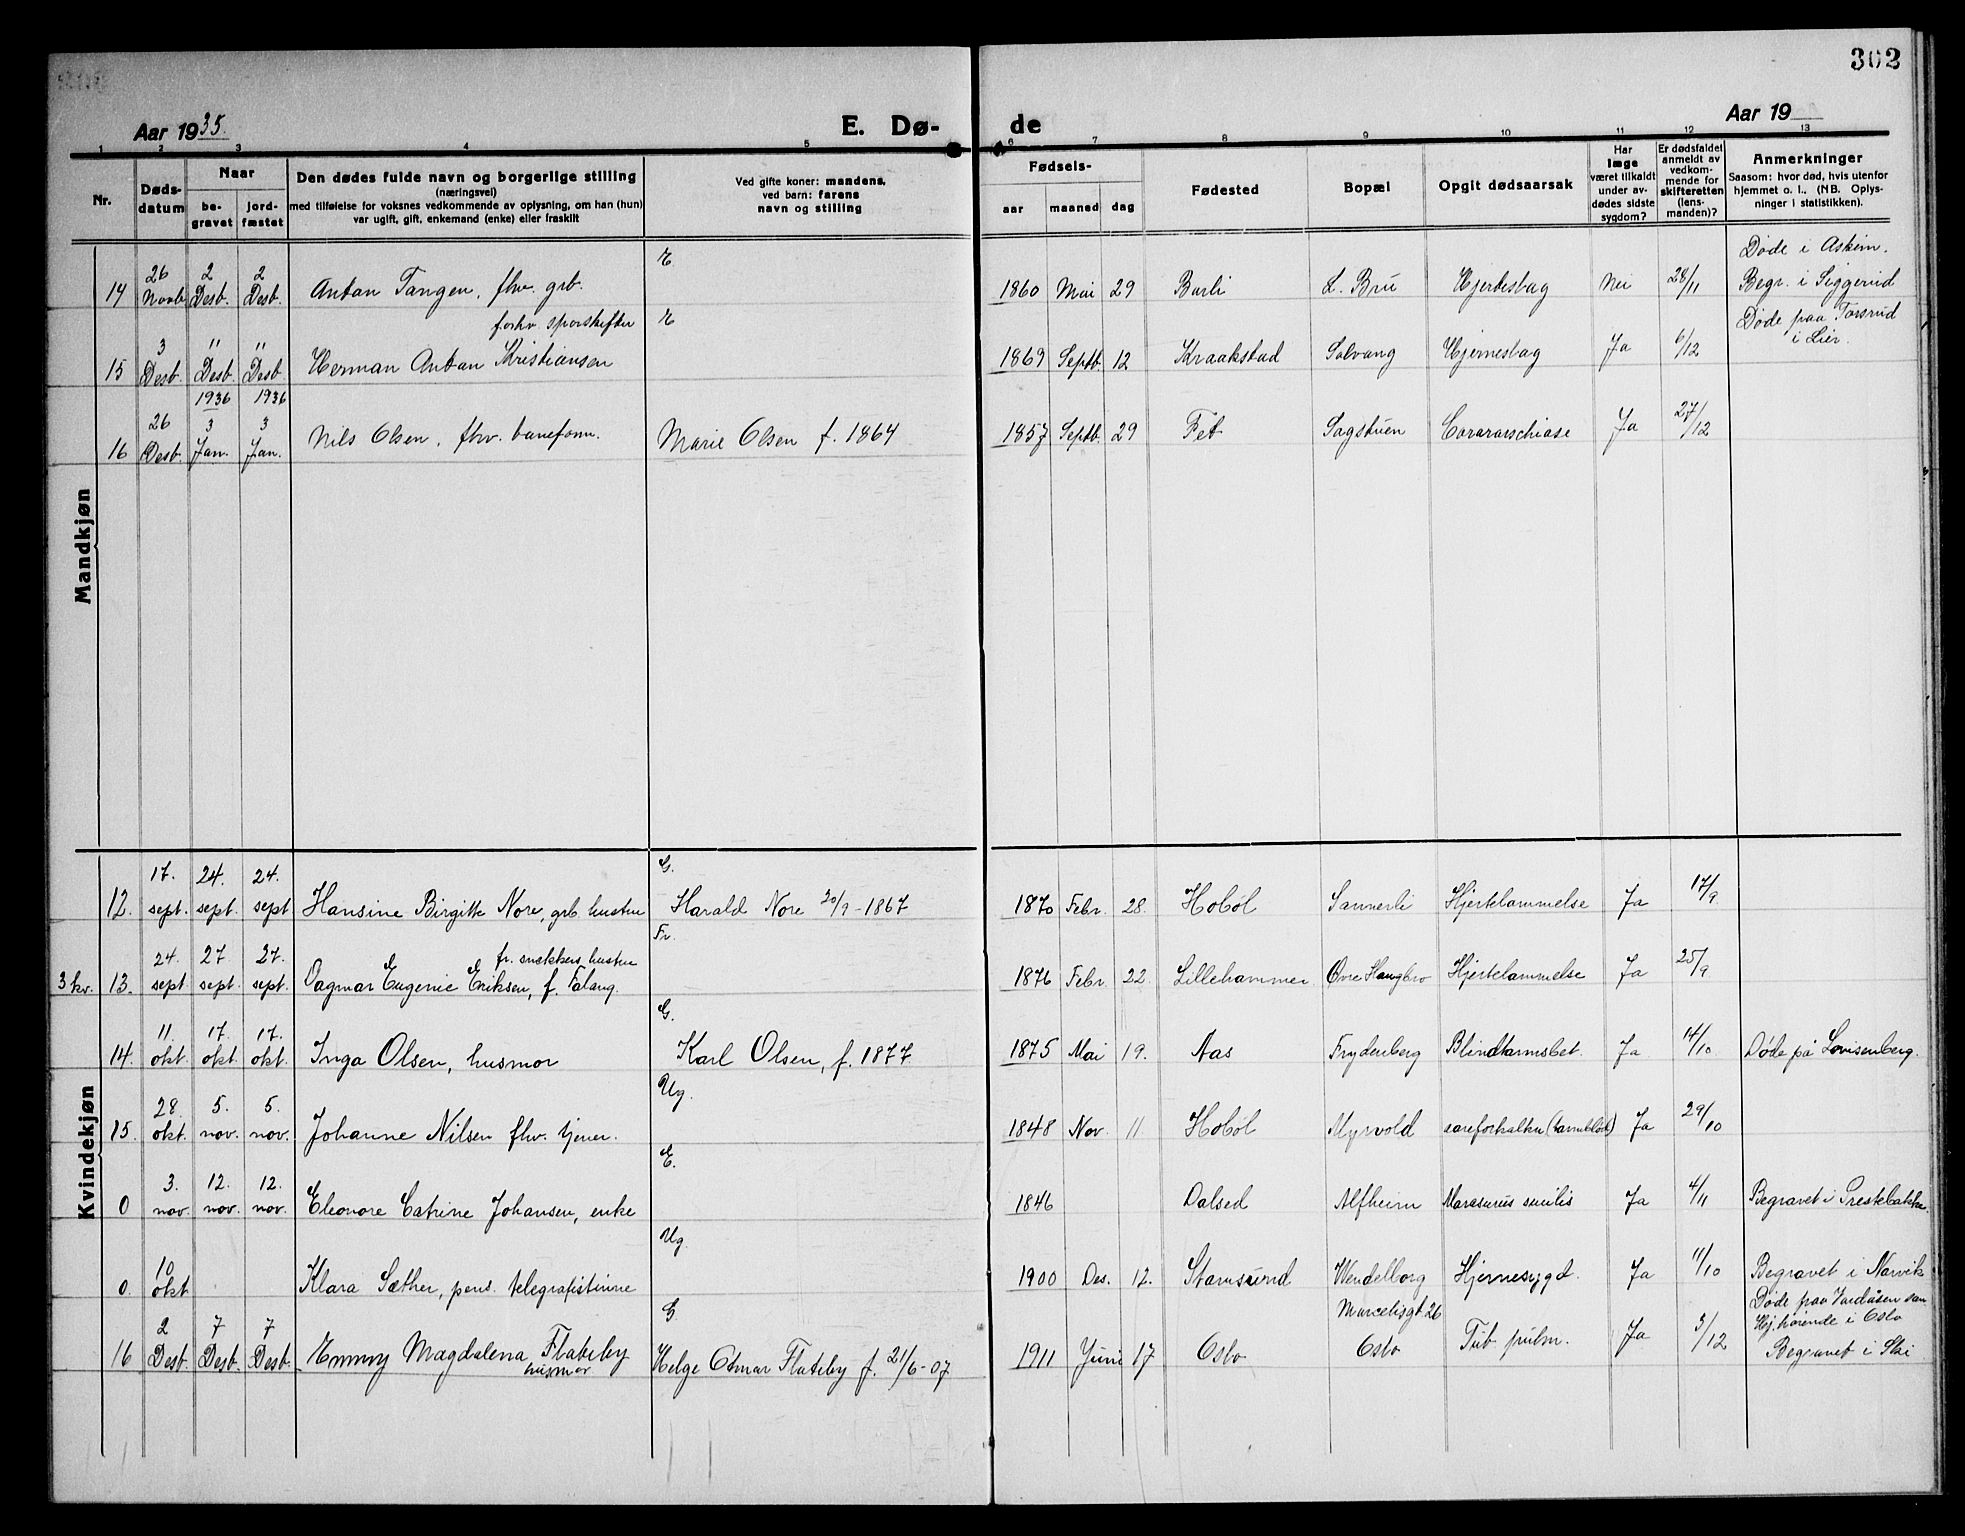 302
Aar 1935.
E. Dø-
de
Aar 19
1 2 3 4 5 6 7 8 9 10 11 12 13
Nr.
Døds-
datum
Naar
be-
gravet
jord-
fæstet
Den dødes fulde navn og borgerlige stilling
(næringsvei)
med tilføielse for voksnes vedkommende av oplysning, om han (hun)
var ugift, gift, enkemand (enke) eller fraskilt
Ved gifte koner: mandens,
ved barn: farens
navn og stilling
Fødsels-
aar maaned dag
Fødested
Bopæl
Opgit dødsaarsak
Har
læge
været tilkaldt
under av-
dødes sidste
sygdom?
Er dødsfaldet
anmeldt av
vedkom-
mende for
skifteretten
(lens-
manden)?
Anmerkninger
Saasom: hvor død, hvis utenfor
hjemmet o. l.. (NB. Oplys-
ninger i statistikken).
Mandkjøn
26 2 2 E Døde i Askim.
14 Novb. Desb. Desb. Anton Tangen, fhv. grb. 1860 Mai 29 Barli L. Bru Hjerteslag Nei 28/11 Begr. i Siggerud
forhv. sporskifter E Døde paa Torsrud
3 " " i Lier.
15 Desb. Desb. Desb. Herman Anton Kristiansen 1869 Septb. 12 Kraakstad Solvang Hjerneslag Ja 6/12
1936 1936
26 3 3
16 Desb. Jan. Jan. Nils Olsen, fhv. baneform. Marie Olsen f. 1864 1857 Septb. 29 Fet Sagstuen Ja 27/12
Kvindekjøn
17. 24. 24. G.
12. sept. sept. sept Hansine Birgitte Nore, grb. hustru Harald Nore 30/9-1867 1870 Febr. 28. Hobøl Sannerli Hjertelammelse Ja 17/9
Fr.
24. 27 27. fr. snekkers hustru
3 kv. 13. sept sept. sept. Dagmar Eugenie Eriksen, f. Falang. 1876 Febr. 22. Lillehammer Øvre Haugbro Hjertelammelse Ja 25/9
11. 17. 17. G.
14. okt. okt. okt. Inga Olsen, husmor Karl Olsen, f. 1877. 1875 Mai 19. Aas Frydenberg Blindtarmsbet. Ja 14/10 Døde på Lovisenberg.
28. 5. 5. Ug.
15. okt. nov. nov. Johanne Nilsen fhv. tjener. 1848 Nov. 11 Hobøl Myrvold Ja 29/10
3. 12. 12. E.
0 nov. nov. nov. Eleonore Catrine Johansen, enke 1846 Dalsed Alfheim Marasmus senilis Ja 4/11 Begravet i Prestebakke.
Ug.
10
0. okt Klara Sæther, pens. telegrafistinne 1900 Des. 12. Stamsund Wendelborg Hjernesygd. Ja 11/10 Begravet i Narvik
2 7 7 G. Marcelisgt. 26 Døde paa Vardåsen san
Hj. hørende i Oslo
16 Desb. Desb. Desb. Emmy Magdalena Flateby Helge Otmar Flateby f. 21/6-07 1911 Juni 17 Oslo Oslo Tub. pulm. Ja 3/12 Begravet i Ski
husmor